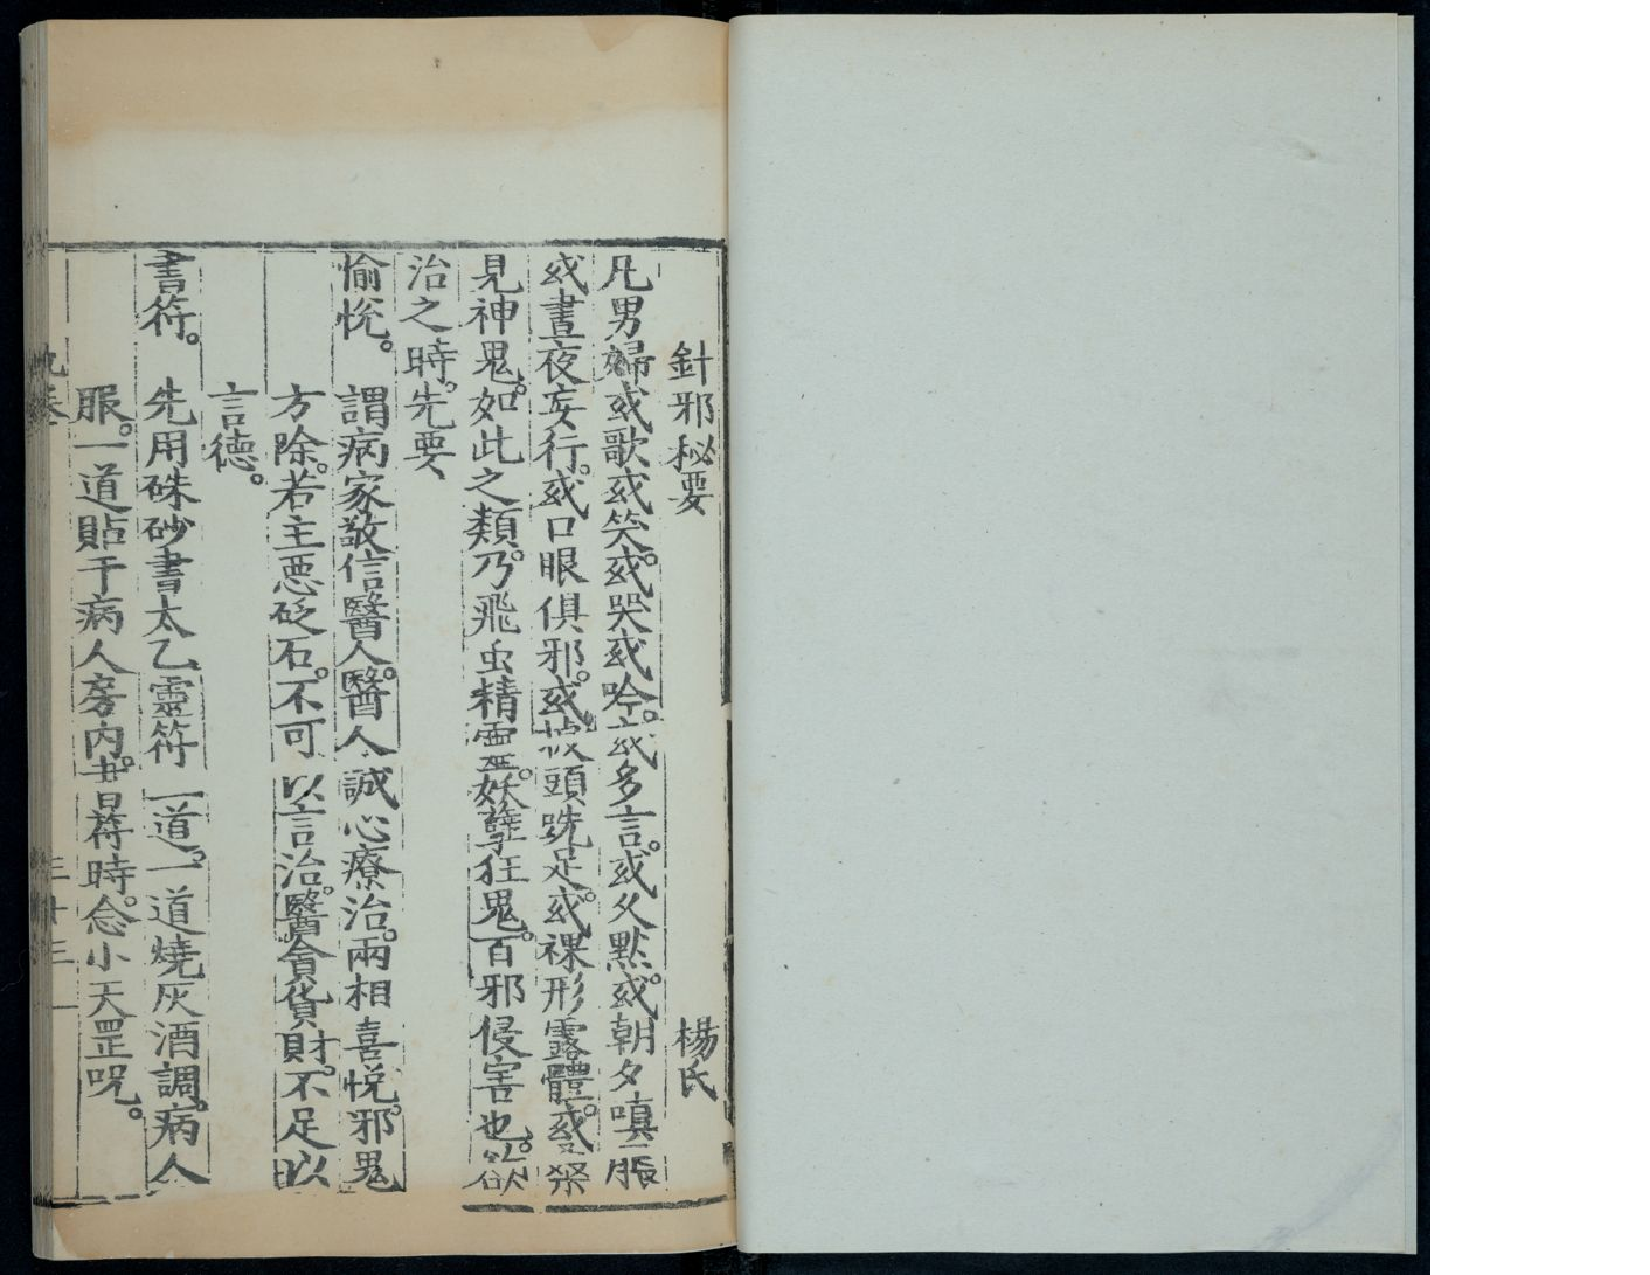 針邪秘要 楊氏
凡男婦或歌或笑。或哭或吟。或多言。或久黙。或朝夕嗔
或晝夜妄行。或口眼俱邪。或披頭跣足。或裸形露體。或
見神鬼。如此之類。乃飛虫精靈。妖孽狂鬼。百邪侵害也。欲
治之時。先要
愉悅。 謂病家敬信醫人。醫人誠心療治。兩相喜悅。邪鬼
方除。若主惡砭石。不可以言治。醫貪貨財。不足以
言德。
書符。 先用硃砂書太乙靈符一道。一道燒灰酒調。病人
服。一道貼于病人房內。書符時。念小天罡咒。
九卷 三十三